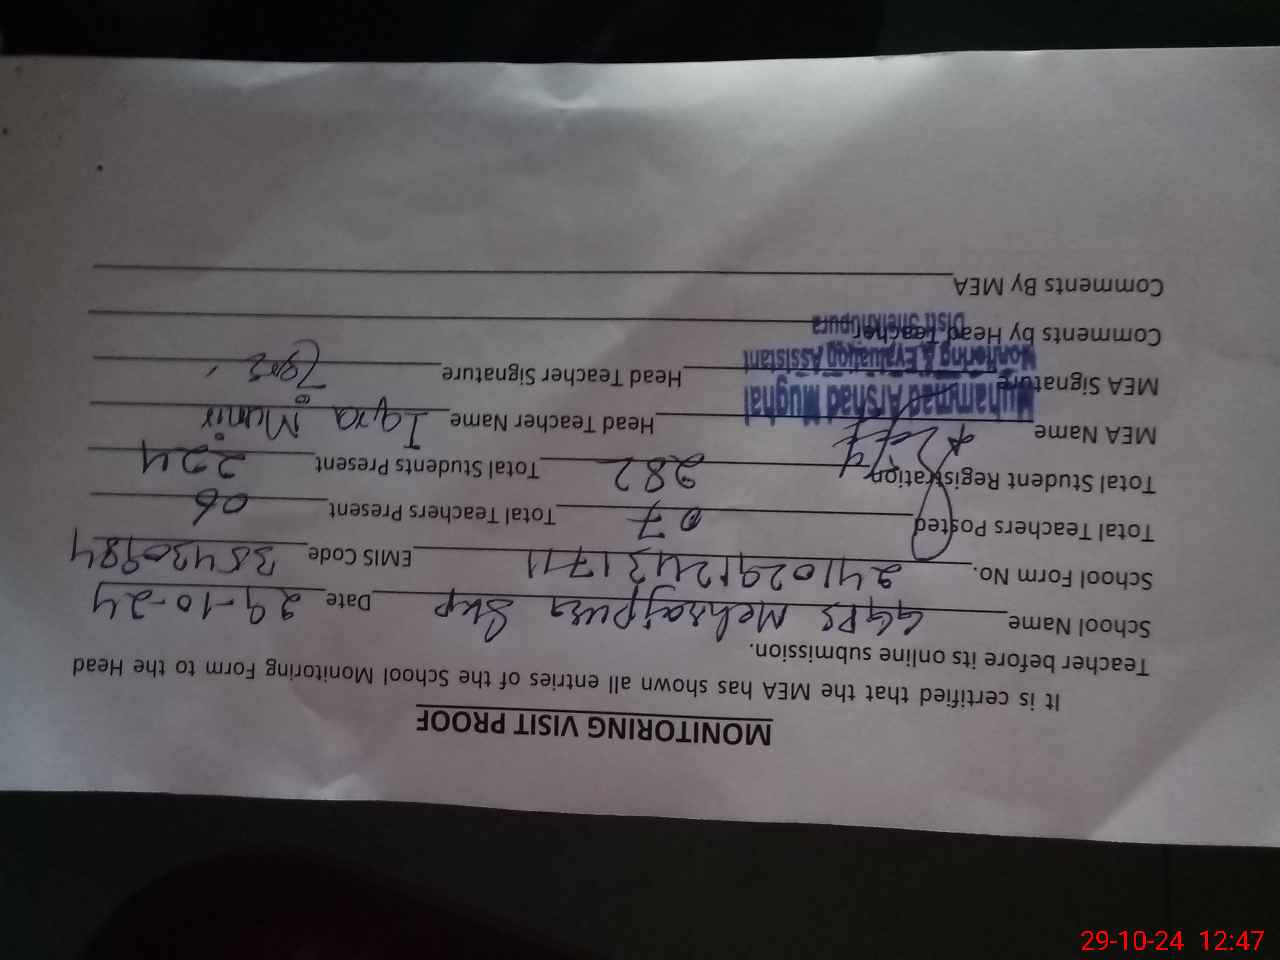 MONITORING VISIT PROOF
It is certified that the MEA has shown all entries of the School Monitoring Form to the Head
Teacher before its online submission.
School Name GGPS Mehrajpura Skp Date 29-10-24
School Form No. 24102912431711 EMIS Code 35430984
Total Teachers Posted 07 Total Teachers Present 06
Total Student Registration 282 Total Students Present 224
MEA Name Head Teacher Name Iqra Munir
Muhammad Arshad Mughal
MEA Signature Head Teacher Signature
Monitoring & Evaluation Assistant
Comments by Head Teacher
Distt Sheikhupura
Comments By MEA
29-10-24 12:47